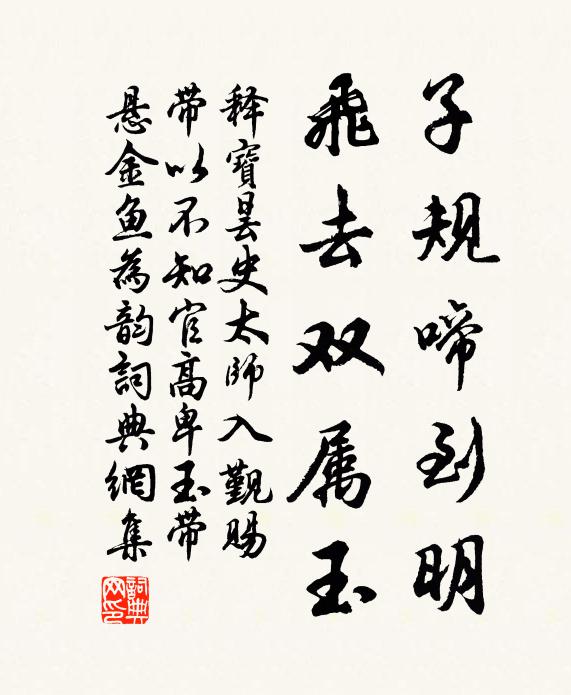 子规啼到明
飛去双属玉
释寶昙史太師入觐賜
带以不知官高卑玉带
悬金鱼為韵詞典網集
詞典網印